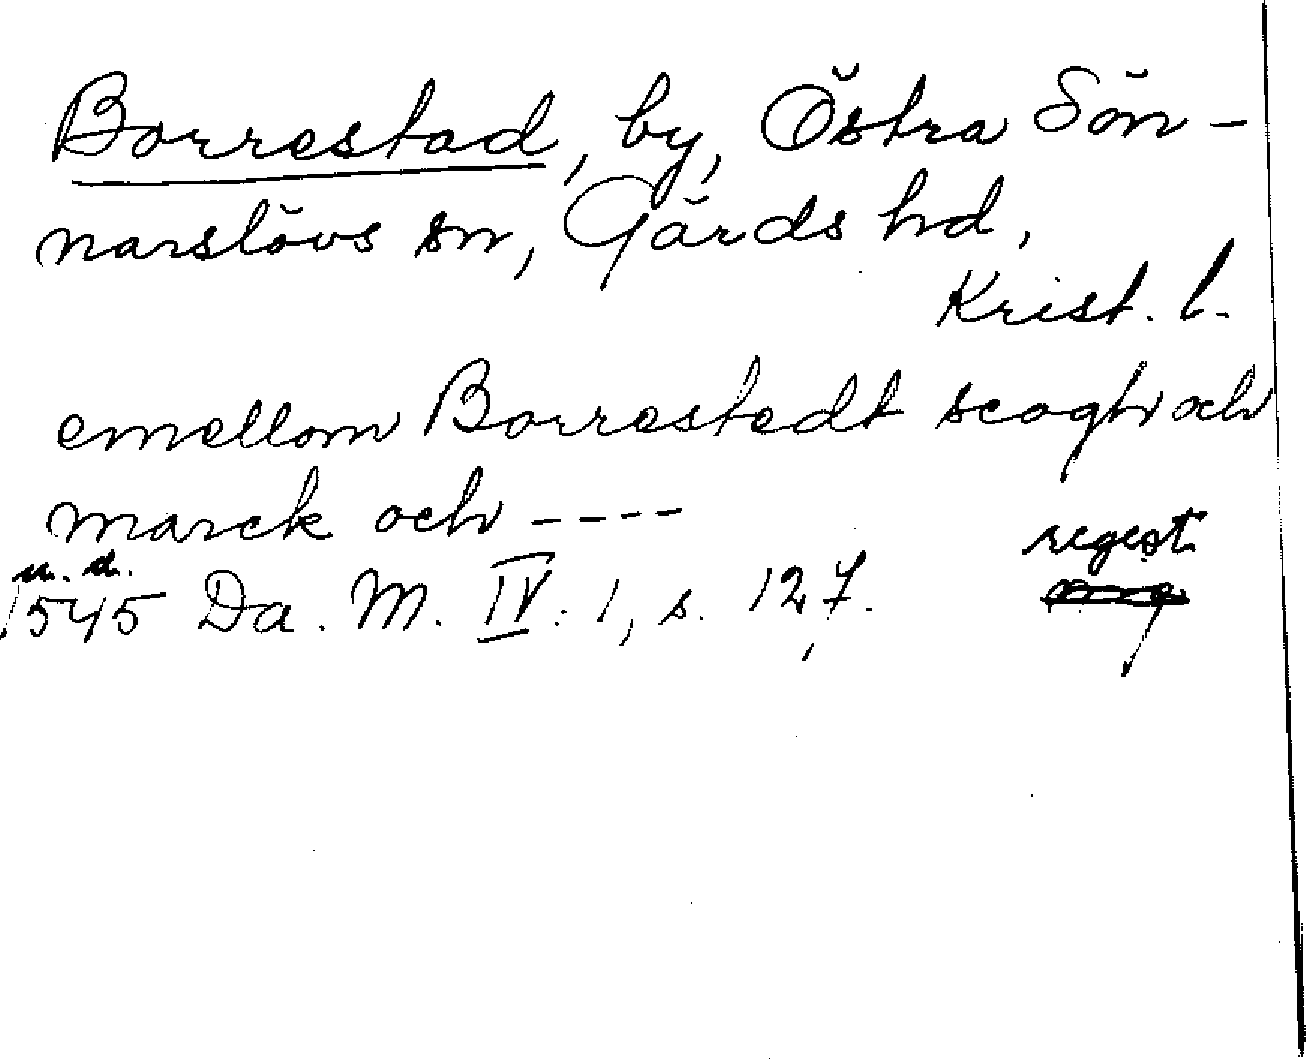 Borrestad, by, Östra Sön-
narslövs sn, Gärds hd,
Krist. l.
emellom Borrestedt scogh och
marck och ----
regest.
u. d.
1545 Da. M. IV: 1, s. 127.